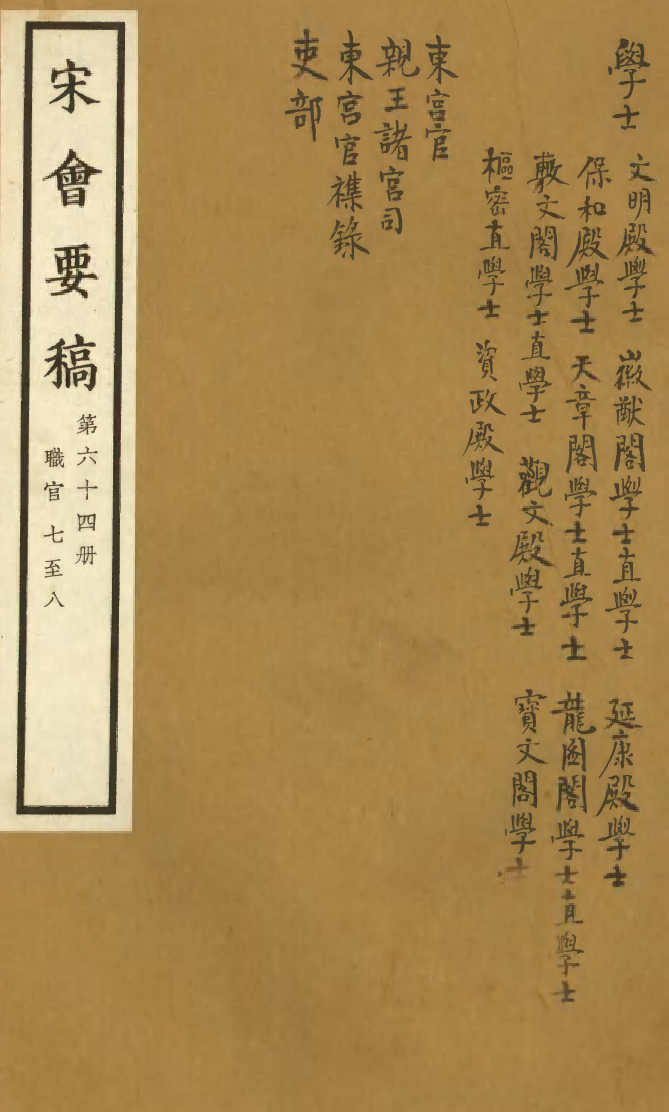 學士
文明殿學士 徽猷閣學士直學士 延康殿學士
保和殿學士 天章閣學士直學士 龍圖閣學士直學士
敷文閣學士直學士 觀文殿學士 寶文閣學士
樞密直學士 資政殿學士
東宮官
親王諸宮司
東宮官襍錄
吏部
宋會要稿
第六十四册
職官 七至八